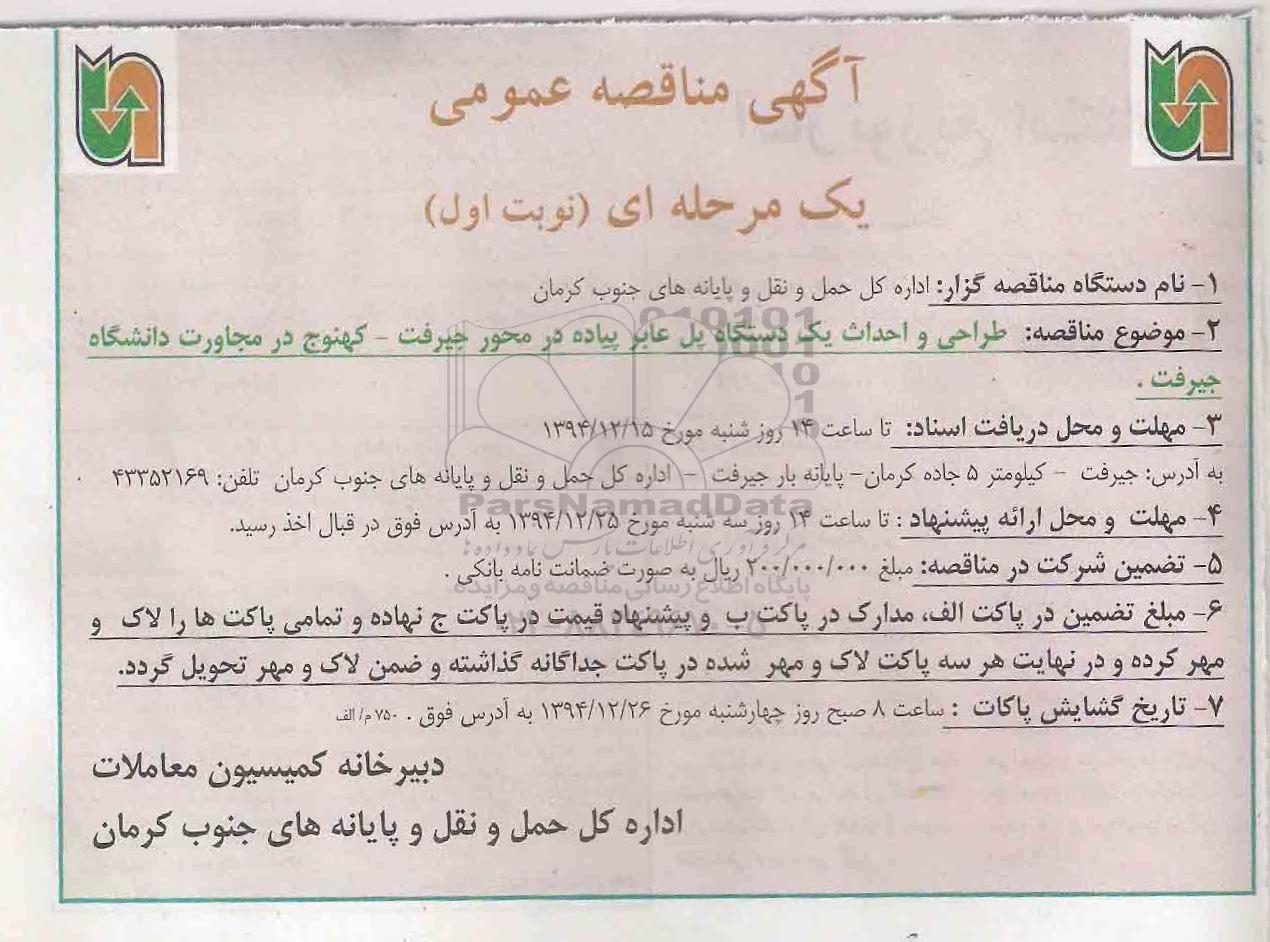 آگهی مناقصه عمومی
یک مرحله ای (نوبت اول)
۱- نام دستگاه مناقصه گزار: اداره کل حمل و نقل و پایانه های جنوب کرمان
۲- موضوع مناقصه: طراحی و احداث یک دستگاه پل عابر پیاده در محور جیرفت - کهنوج در مجاورت دانشگاه
جیرفت .
۳- مهلت و محل دریافت اسناد: تا ساعت ۱۴ روز شنبه مورخ ۱۳۹۴/۱۲/۱۵
به آدرس: جیرفت - کیلومتر ۵ جاده کرمان- پایانه بار جیرفت - اداره کل حمل و نقل و پایانه های جنوب کرمان تلفن: ۴۳۳۵۲۱۶۹ .
ParsNamadData
۴- مهلت و محل ارائه پیشنهاد : تا ساعت ۱۴ روز سه شنبه مورخ ۱۳۹۴/۱۲/۲۵ به آدرس فوق در قبال اخذ رسید.
مرکز فرآوری اطلاعات پارس نماد داده ها
۵- تضمین شرکت در مناقصه: مبلغ ۲۰۰/۰۰۰/۰۰۰ ریال به صورت ضمانت نامه بانکی .
پایگاه اطلاع رسانی مناقصه ومزایده
۶- مبلغ تضمین در پاکت الف، مدارک در پاکت ب و پیشنهاد قیمت در پاکت ج نهاده و تمامی پاکت ها را لاک و
مهر کرده و در نهایت هر سه پاکت لاک و مهر شده در پاکت جداگانه گذاشته و ضمن لاک و مهر تحویل گردد.
۷- تاریخ گشایش پاکات : ساعت ۸ صبح روز چهارشنبه مورخ ۱۳۹۴/۱۲/۲۶ به آدرس فوق . ۷۵۰م/الف
دبیرخانه کمیسیون معاملات
اداره کل حمل و نقل و پایانه های جنوب کرمان